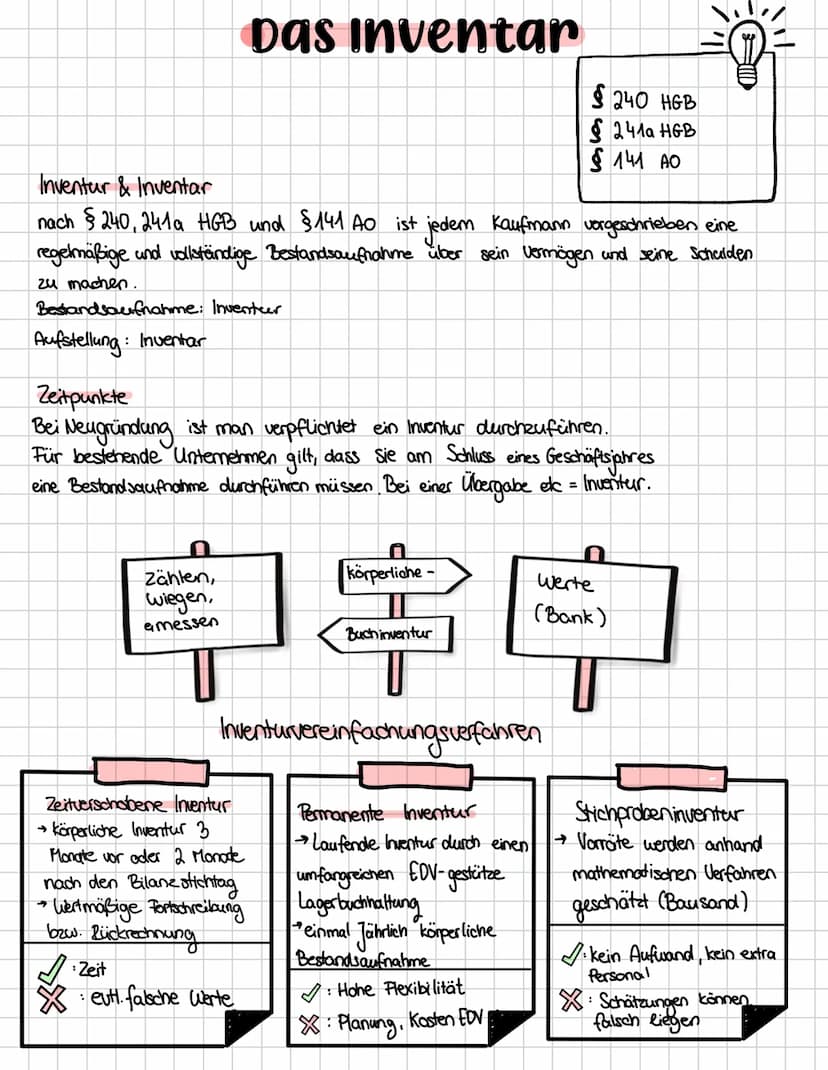 Das Inventar
§ 240 HGB
§ 241a HGB
§ 141 AO
Inventur & Inventar
nach § 240, 241a HGB und § 141 AO ist jedem Kaufmann vorgeschrieben eine
regelmäßige und vollständige Bestandsaufnahme über sein Vermögen und seine Schulden
zu machen.
Bestandsaufnahme: Inventur
Aufstellung: Inventar
Zeitpunkte
Bei Neugründung ist man verpflichtet ein Inventur durchzuführen.
Für bestehende Unternehmen gilt, dass sie am Schluss eines Geschäftsjahres
eine Bestandsaufnahme durchführen müssen. Bei einer Übergabe etc = Inventur.
Zählen,
wiegen,
messen
körperliche -
Buchinventur
Werte
(Bank)
Inventurvereinfachungsverfahren
Zeitverschobene Inventur
→ körperliche Inventur 3
Monate vor oder 2 Monate
nach den Bilanzstichtag
→ Wertmäßige Fortschreibung
bzw. Rückrechnung
✓ : Zeit
✗ : evtl. falsche Werte
Permanente Inventur
→ Laufende Inventur durch einen
umfangreichen EDV-gestütze
Lagerbuchhaltung
→ einmal Jährlich körperliche
Bestandsaufnahme
✓ : Hohe Flexibilität
✗ : Planung, Kosten EDV
Stichprobeninventur
→ Vorräte werden anhand
mathematischen Verfahren
geschätzt (Bausand)
✓ : kein Aufwand, kein extra
Personal
✗ : Schätzungen können
falsch liegen